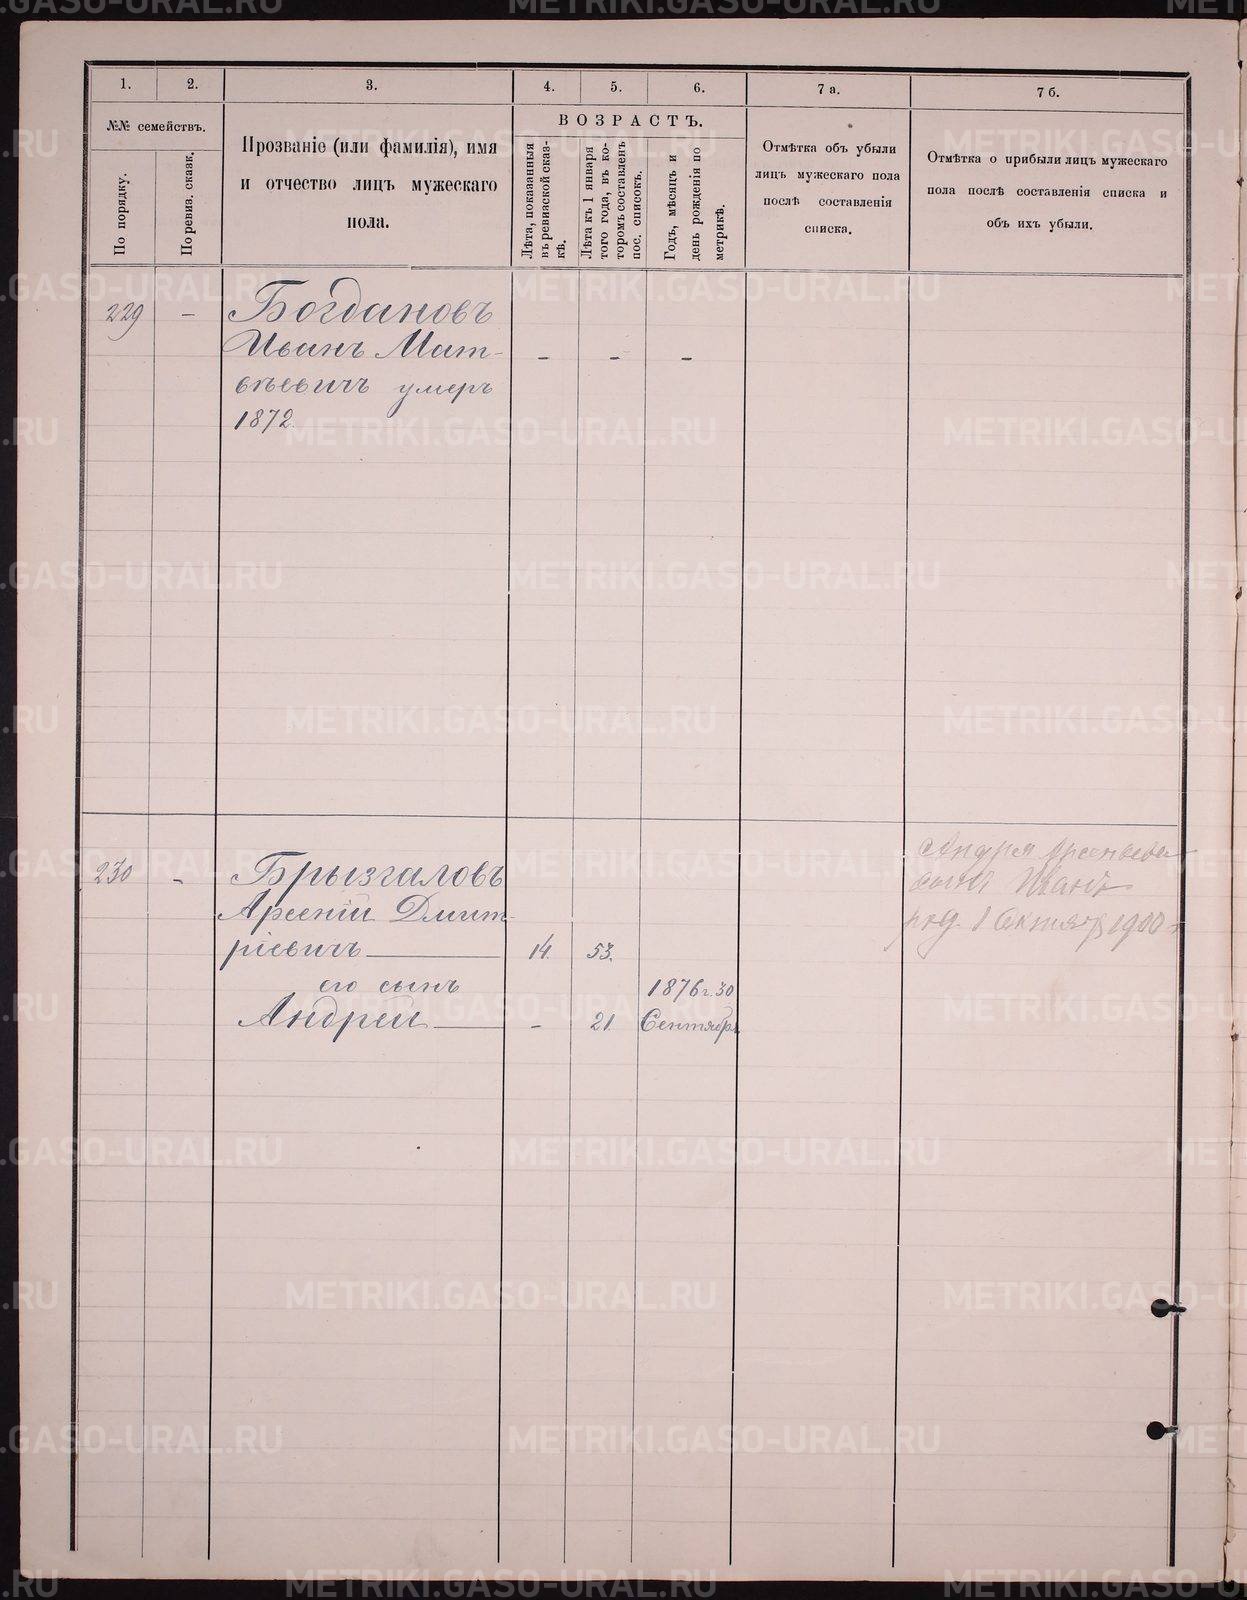 1.
2.
3.
4.
5.
6.
7 а.
7 б.
№№ семействъ.
По порядку.
По ревиз. сказк.
Прозваніе (или фамилія), имя
и отчество лицъ мужескаго
пола.
ВОЗРАСТЪ.
Лѣта, показанныя
въ ревизской сказ-
кѣ.
Лѣта къ 1 января
того года, въ ко-
торомъ составленъ
пос. списокъ.
Годъ, мѣсяцъ и
день рожденія по
метрикѣ.
Отмѣтка объ убыли
лицъ мужескаго пола
послѣ составленія
списка.
Отмѣтка о прибыли лицъ мужескаго
пола послѣ составленія списка и
объ ихъ убыли.
229 - Богдановъ
Иванъ Мат- - - -
вѣевичъ умеръ
1872.
230 - Брызгаловъ
Арсеній Дмит-
ріевичъ 14. 53.
его сынъ 1876 г. 30
Андрей - 21. Сентября
Андрея Арсеньева
сынъ Иванъ
род. 1 Октяб 1900
METRIKI.GASO-URAL.RU